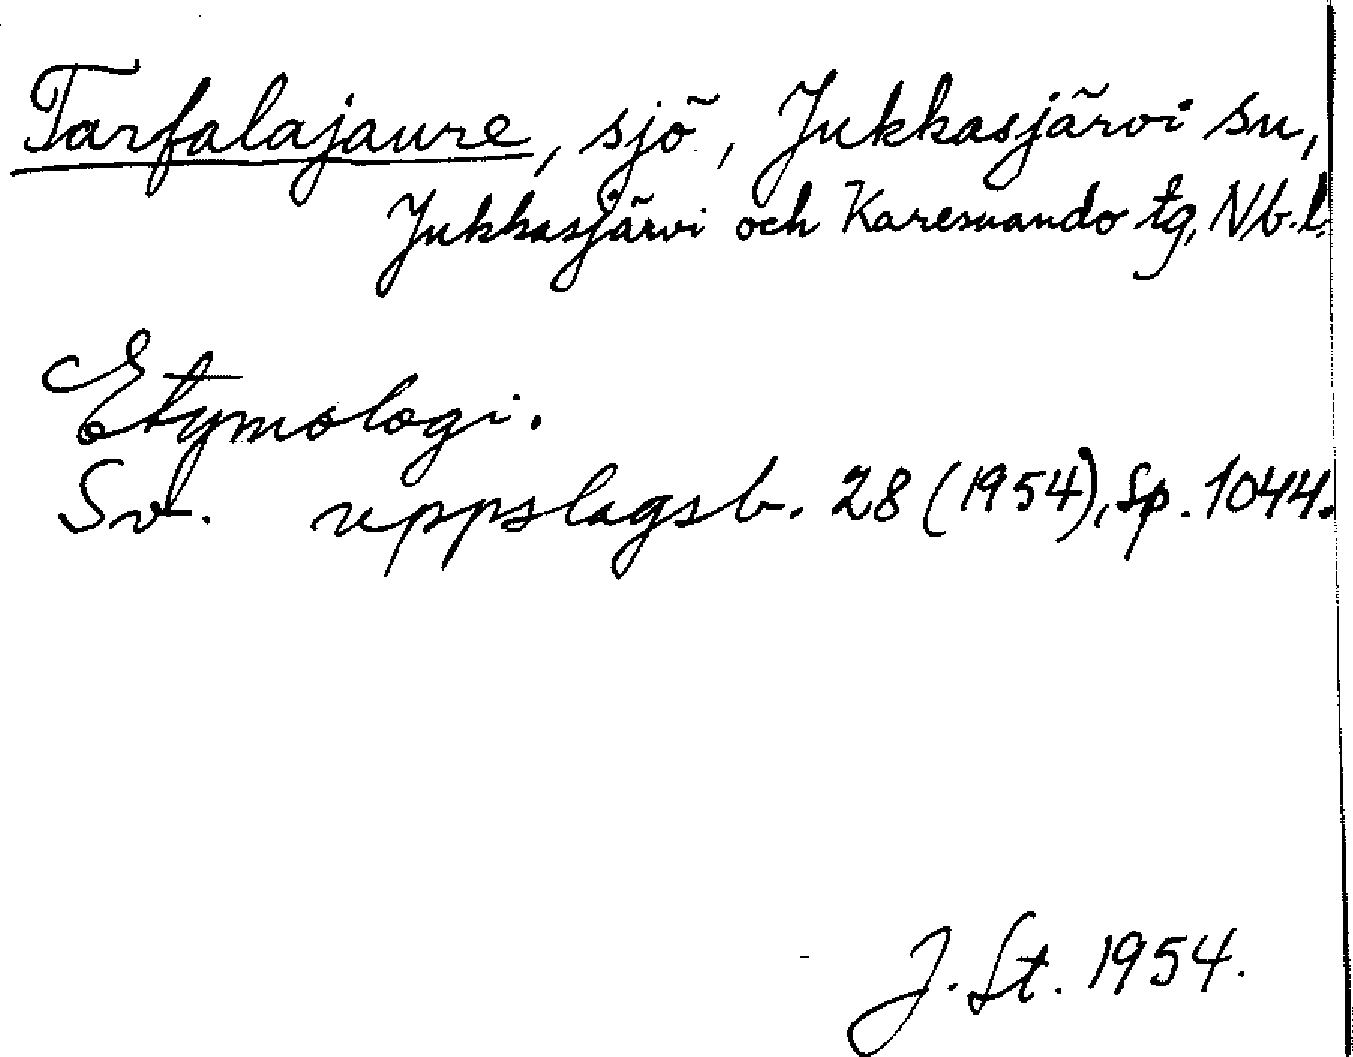 Tarfalajaure, sjö, Jukkasjärvi su,
Jukkasjärvi och Karesuando tg, Nb.l.
Etymologi.
Sv. uppslagsb. 28 (1954), Sp. 1044.
J. St. 1954.